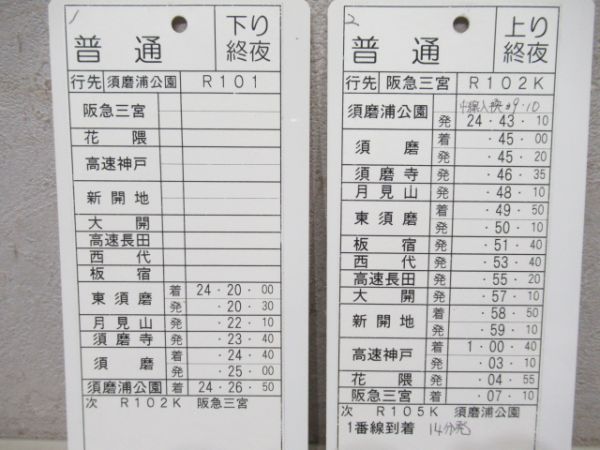 1
普通 下り終夜
行先 須磨浦公園 R101
阪急三宮
花隈
高速神戸
新開地
大開
高速長田
西代
板宿
東須磨 着 24・20・00
発 ・20・30
月見山 発 ・22・10
須磨寺 発 ・23・40
須磨 着 ・24・40
発 ・25・00
須磨浦公園 着 24・26・50
次 R102K 阪急三宮
2
普通 上り終夜
行先 阪急三宮 R102K
須磨浦公園 入換 9・10
発 24・43・10
須磨 着 ・45・00
発 ・45・20
須磨寺 発 ・46・35
月見山 発 ・48・10
東須磨 着 ・49・50
発 ・50・10
板宿 発 ・51・40
西代 発 ・53・40
高速長田 発 ・55・20
大開 発 ・57・10
新開地 着 ・58・50
発 ・59・10
高速神戸 着 1・00・40
発 ・03・10
花隈 発 ・04・55
阪急三宮 着 ・07・10
次 R105K 須磨浦公園
1番線到着 14分発